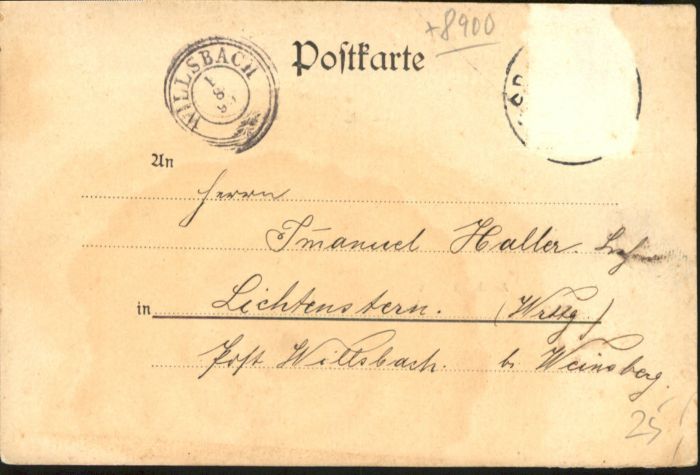 +8900
Postkarte
WILLSBACH
An
Herrn
Imanuel Haller.
in Lichtenstern. (Wrttg.)
Post Willsbach. b. Weinsberg.
25